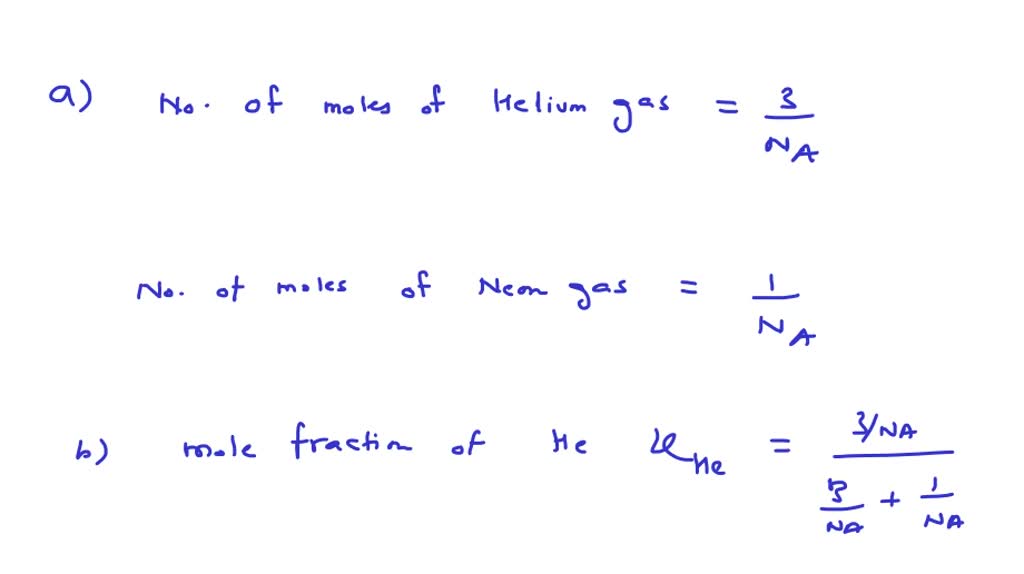 a) No. of moles of Helium gas = 3/NA
No. of moles of Neon gas = 1/NA
b) mole fraction of He xHe = (3/NA)/(3/NA + 1/NA)